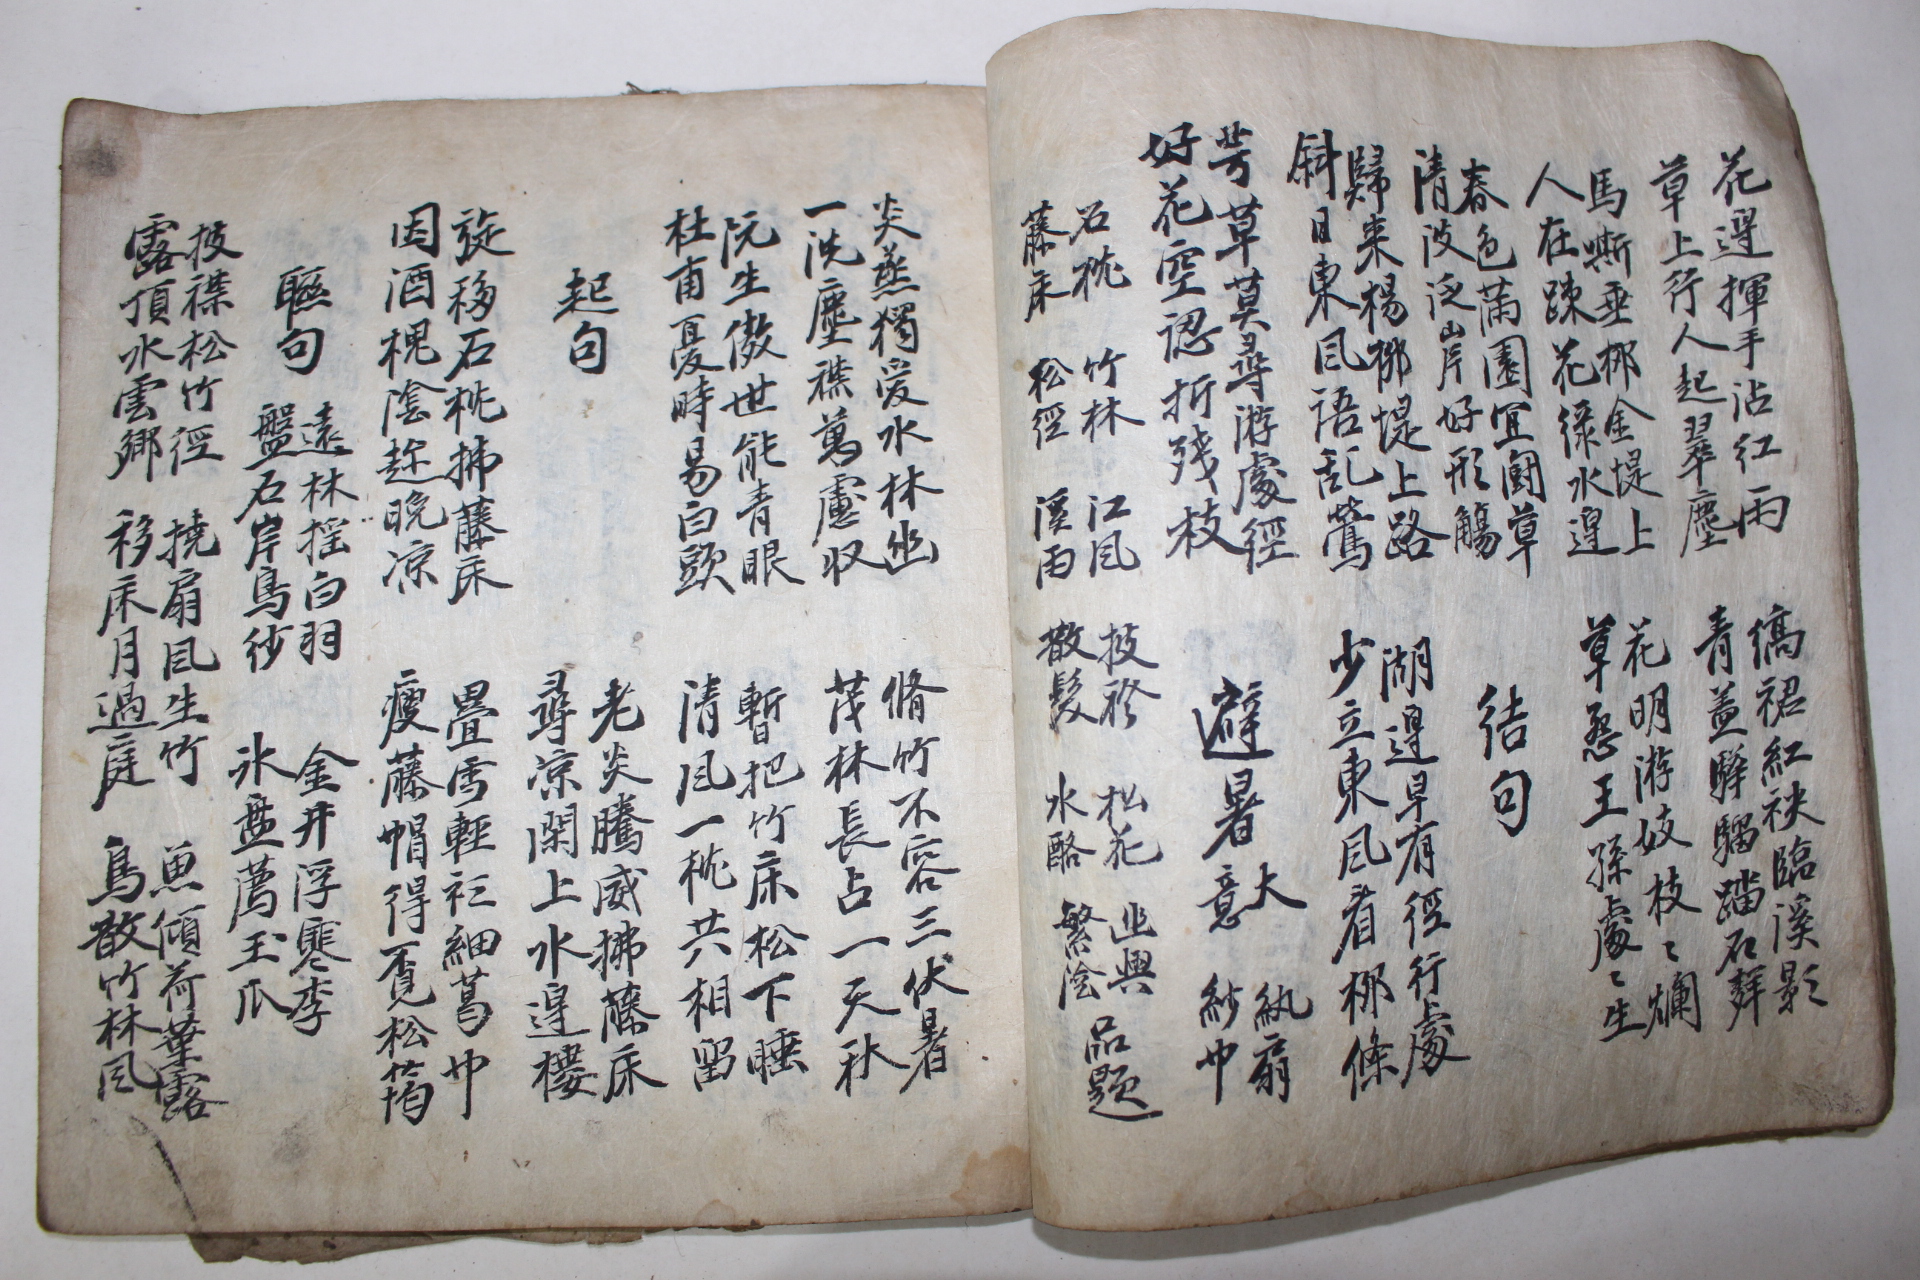 花邊揮手沾紅雨
草上行人起翠塵
縞裙紅袂臨溪影
青蓋驊騮踏石䍧
馬嘶垂柳金堤上
人在踈花綠水邊
花明游妓枝〻爛
草惹王孫處〻生
春色滿園宜鬪草
清波泛岸好形觴
結句
歸來楊柳堤上路
斜日東風語乱鶯
湖邊早有徑行處
少立東風看柳條
芳草莫尋游處徑
好花空認折殘枝
避暑
大意
紈扇
紗巾
石枕 竹林 江風 披襟 松花 幽興
藤床 松徑 溪雨 散髮 水酪 繁陰
品題
炎蒸獨愛水林幽
一洗塵襟萬慮收
脩竹不容三伏暑
茂林長占一天秋
阮生傲世能青眼
杜甫憂時易白頭
暫把竹床松下睡
清風一枕共相留
起句
老炎騰威拂藤床
尋凉閑上水邊樓
旋移石枕拂藤床
因酒槐陰趁晚凉
疊雪輕衫細葛巾
瘦藤帽得覔松筠
聯句
遠林搖白羽
盤石岸烏紗
金井浮寒李
氷盤薦玉瓜
披襟松竹徑
露頂水雲鄉
撓扇風生竹
移床月過庭
魚傾荷葉露
鳥散竹林風